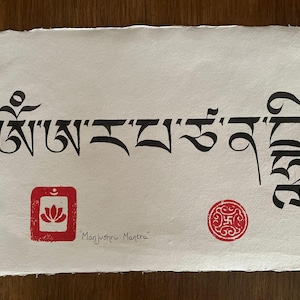 ཨོཾ་ཨ་ར་པ་ཙ་ན་དྷཱི
Manjushri Mantra